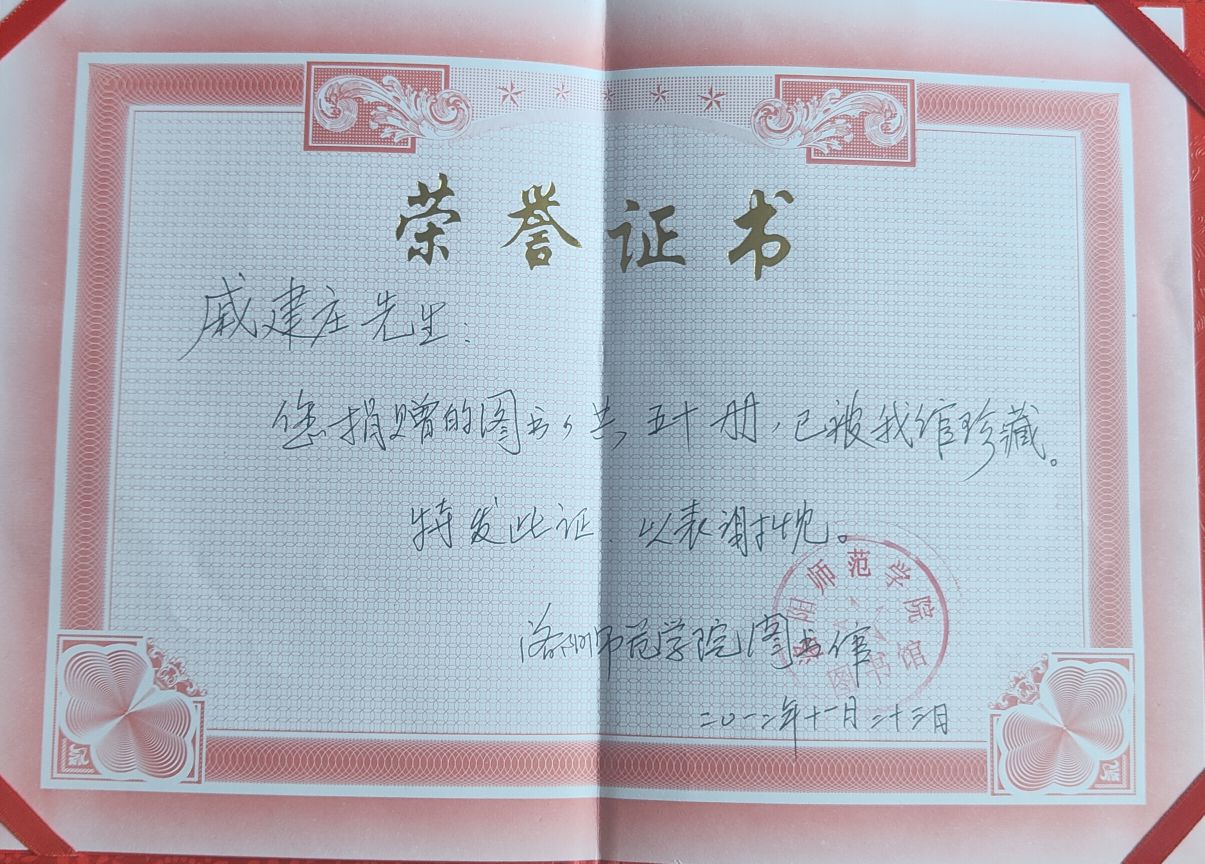 荣誉证书
戚建庄先生:
您捐赠的图书,共五十册,已被我馆珍藏。
特发此证.以表谢忱。
洛阳师范学院图书馆
二〇一二年十一月二十三日
洛阳师范学院
图书馆